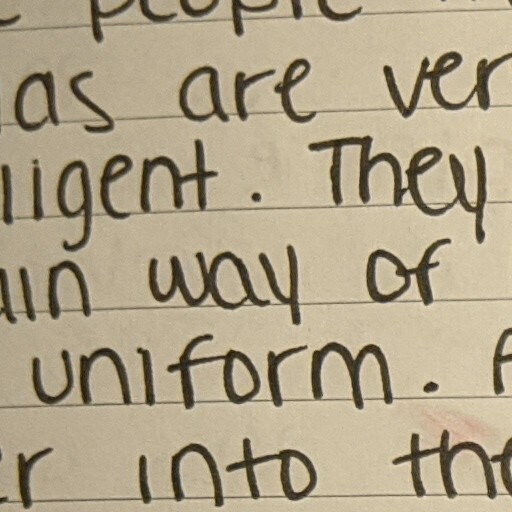 people
as are ver
ligent. They
ain way of
uniform. A
er into the